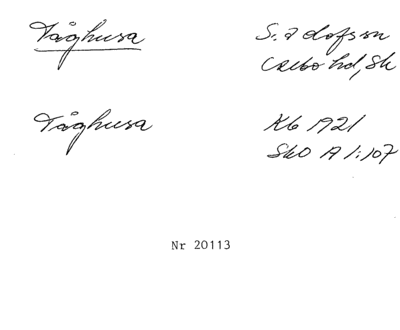 Tåghusa S. Adolfsson
Crebo hd, Sk
Tåghusa Kb 1921
SkO A 1:107
Nr 20113